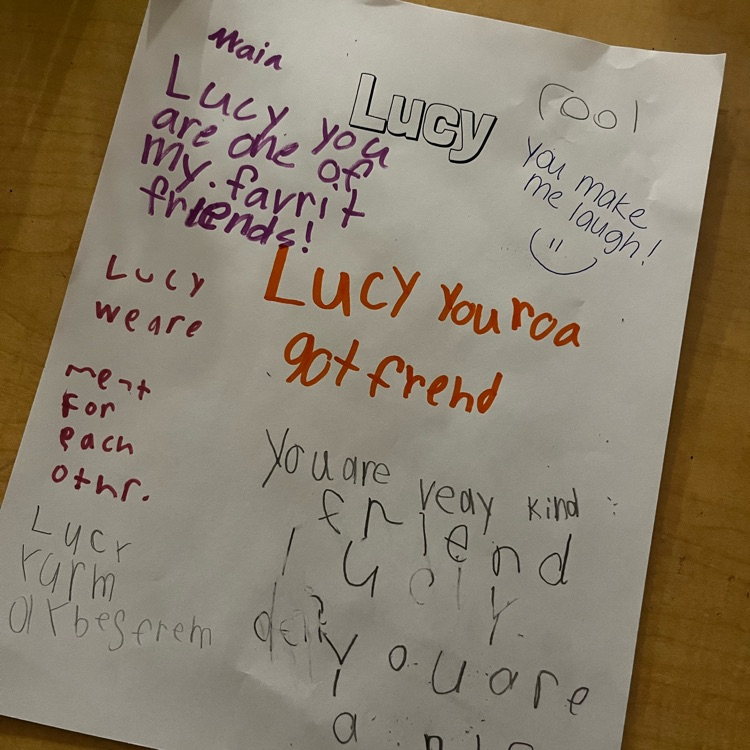 Main
Lucy you
are one of
my.favrit
friends!
Lucy
rool
you make
me laugh!
Lucy
we are
ment
For
each
othr.
Lucy youroa
got frend
You are veay kind
friend
lucly.
you are
a
Lucr
rurm
arbesfrem